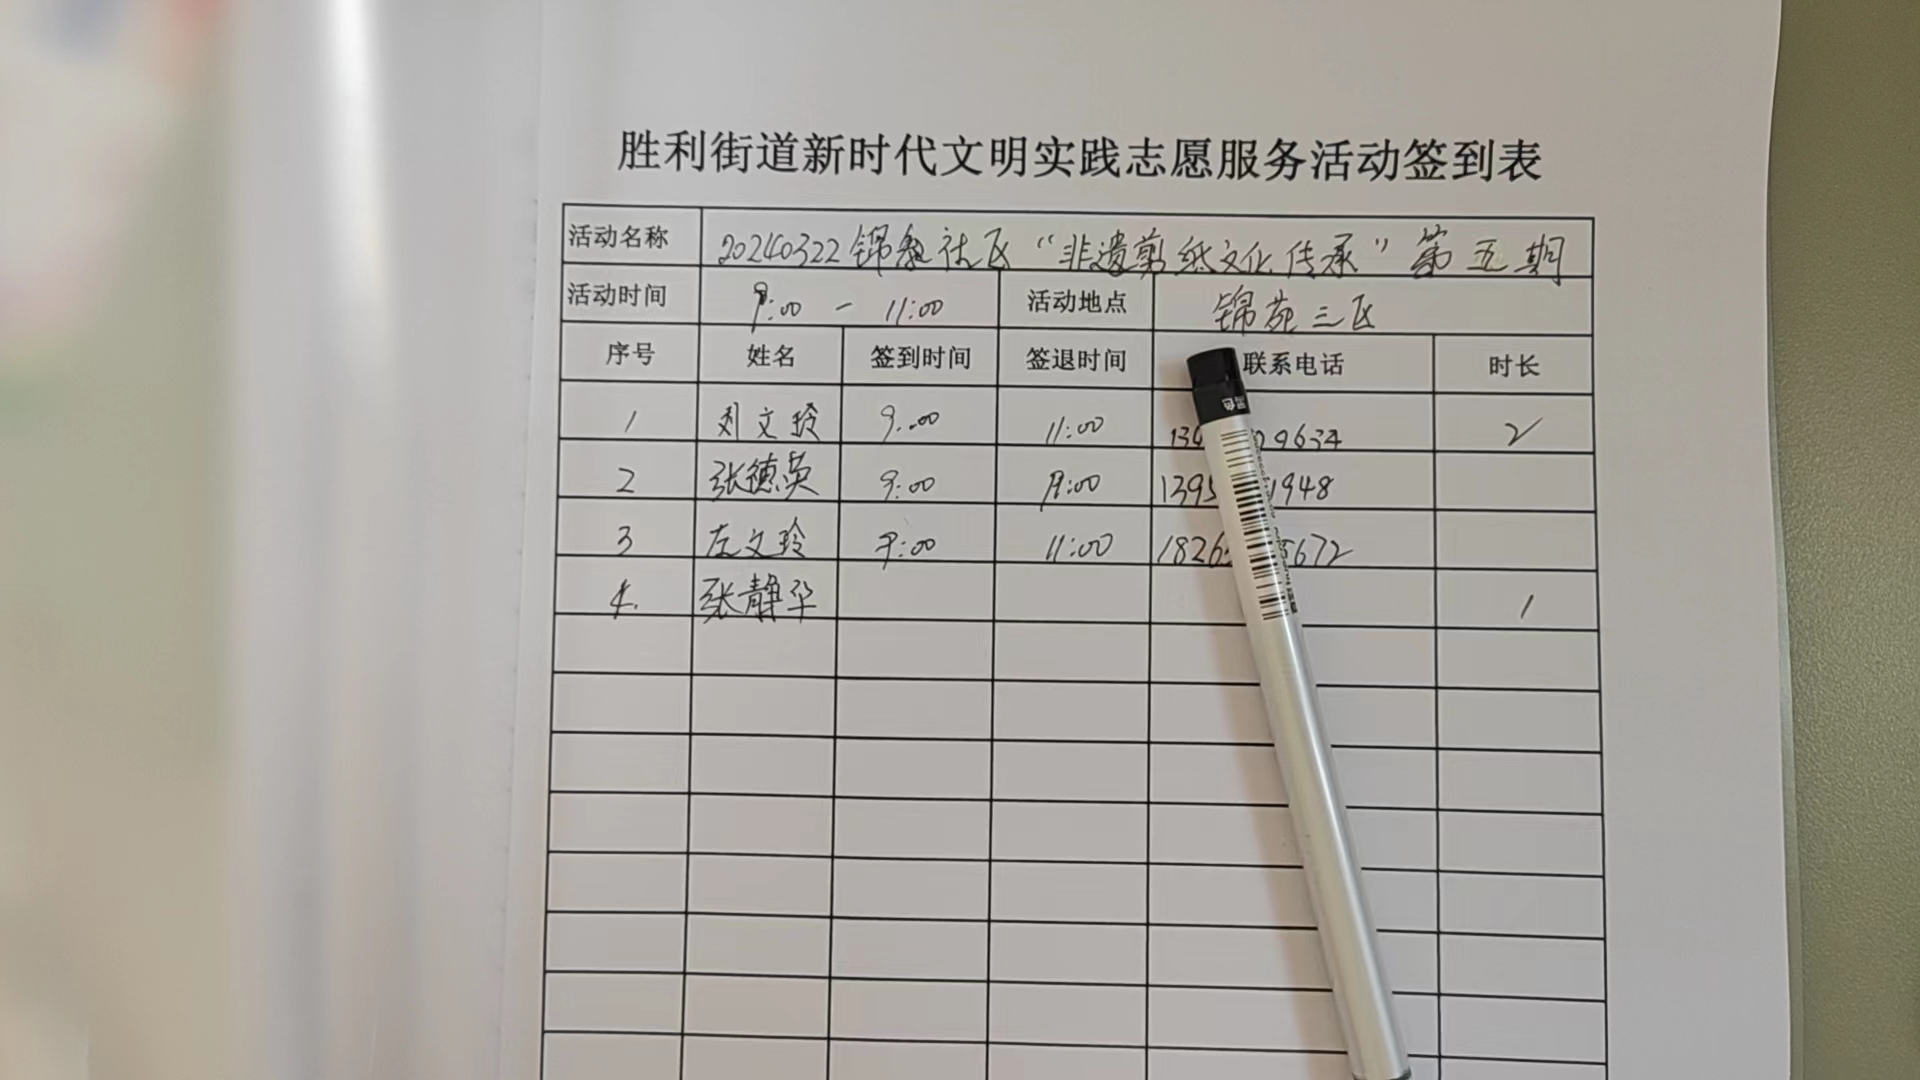 胜利街道新时代文明实践志愿服务活动签到表
活动名称 20240322锦苑社区“非遗剪纸文化传承”第五期
活动时间 9:00 — 11:00 活动地点 锦苑三区
序号 姓名 签到时间 签退时间 联系电话 时长
1 刘文玲 9:00 11:00 9634 2
2 张德英 9:00 11:00 1395 1948
3 左文玲 9:00 11:00 1826 5672
4. 张静华 1
黑色